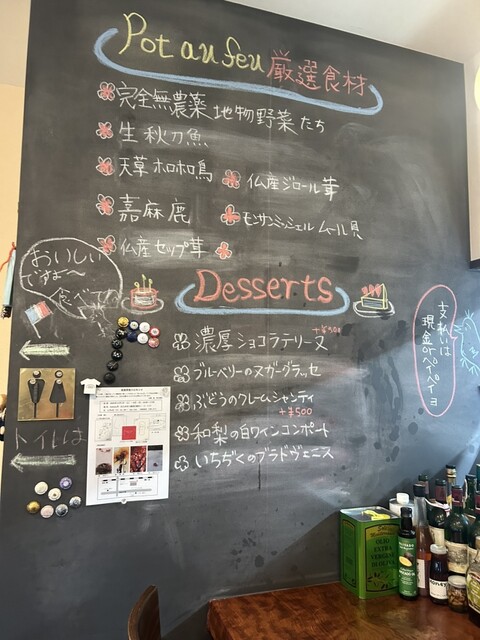 Pot au feu 厳選食材
完全無農薬 地物野菜たち
生秋刀魚
天草ホロホロ鳥
仏産ジロール茸
嘉麻鹿
モンサンミッシェル ムール貝
仏産セップ茸
おいしい
ですな〜
食べて
Desserts
濃厚ショコラテリーヌ
ブルーベリーのヌガーグラッセ
ぶどうのクレームシャンティ
+¥500
和梨の白ワインコンポート
いちぢくのブラドヴェニス
支払いは
現金orペイペイヨ
トイレは
OLIO
EXTRA
VERGINE